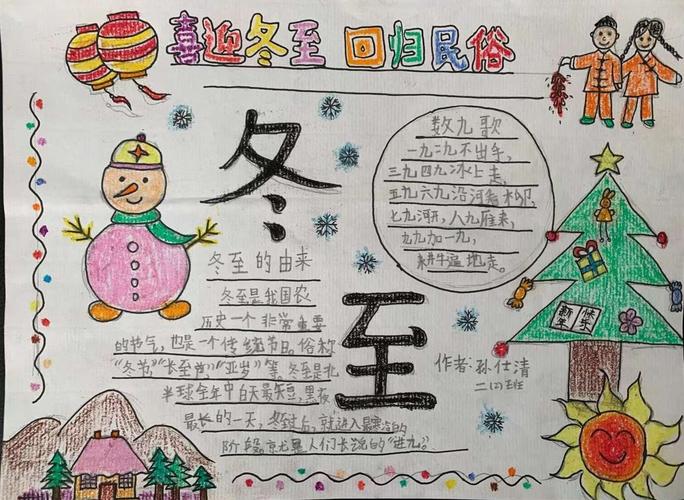 喜迎冬至 回归民俗
冬
至
数九歌
一九二九不出手,
三九四九冰上走,
五九六九沿河看柳,
七九河开,八九雁来,
九九加一九,
耕牛遍地走。
冬至的由来
冬至是我国农
历史一个非常重要
的节气,也是一个传统节日。俗称
“冬节”“长至节”“亚岁”等,冬至是北
半球全年中白天最短,黑夜
最长的一天,冬至过后,就进入最寒冷的
阶段。就是人们长说的“进九”。
作者:孙仕清
二(2)班
新年 快乐